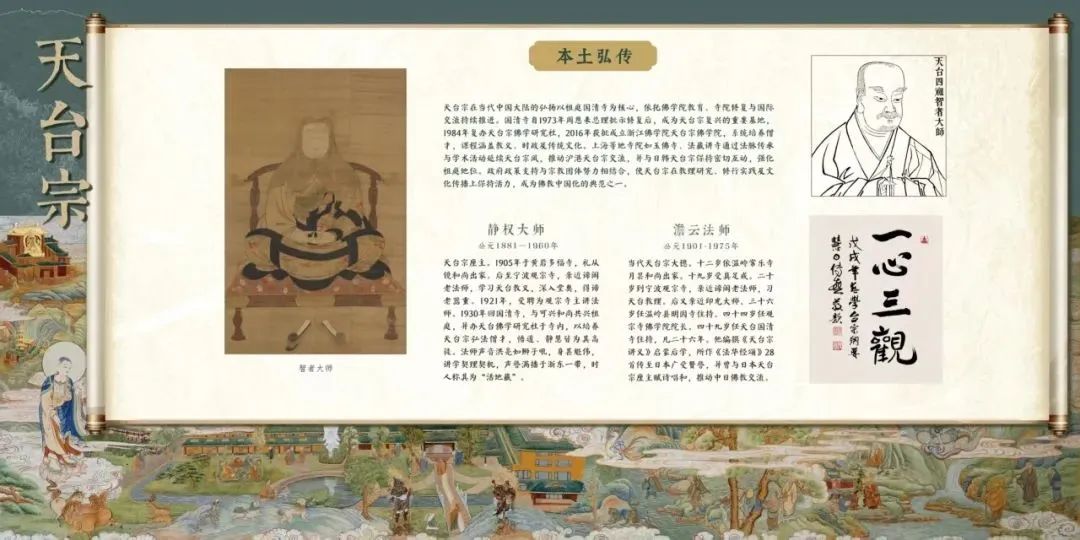 天台宗
本土弘传
天台宗在当代中国大陆的弘扬以祖庭国清寺为核心，依托佛学院教育、寺院修复与国际
交流持续推进。国清寺自1973年周恩来总理批示修复后，成为天台宗复兴的重要基地，
1984年复办天台宗佛学研究社，2016年获批成立浙江佛学院天台宗佛学院，系统培养僧
才，课程涵盖教义、时政及传统文化。上海等地寺院如玉佛寺、法藏讲寺通过法脉传承
与学术活动延续天台宗风，推动沪港天台宗交流，并与日韩天台宗保持密切互动，强化
祖庭地位。政府政策支持与宗教团体努力相结合，使天台宗在教理研究、修行实践及文
化传播上保持活力，成为佛教中国化的典范之一。
静权大师
公元1881—1960年
天台宗座主。1905年于黄岩多福寺，礼从
镜和尚出家。后至宁波观宗寺，亲近谛闲
老法师，学习天台教义，深入堂奥，得谛
老器重。1921年，受聘为观宗寺主讲法
师。1930年回国清寺，与可兴和尚共兴祖
庭，并办天台佛学研究社于寺内，以培养
天台宗弘法僧才，悟道、静慧皆为其高
徒。法师声音洪亮如狮子吼，身甚魁伟，
讲学契理契机，声誉满播于浙东一带，时
人称其为“活地藏”。
澹云法师
公元1901-1975年
当代天台宗大德。十二岁依温岭常乐寺
月昙和尚出家。十九岁受具足戒，二十
岁到宁波观宗寺，亲近谛闲老法师，习
天台教理。后又亲近印光大师。三十六
岁任温岭县明因寺住持，四十四岁任观
宗寺佛学院院长，四十九岁任天台国清
寺住持，凡二十六年。他编撰《天台宗
讲义》启蒙后学，所作《法华经颂》28
首传至日本广受赞誉，并曾与日本天台
宗座主赋诗唱和，推动中日佛教交流。
智者大师
天台四祖智者大師
一心三觀